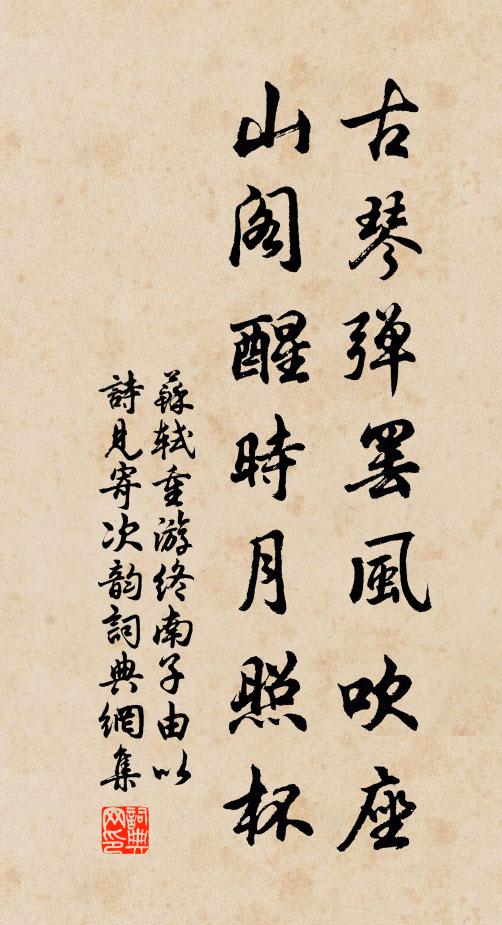 古琴彈罷風吹座
山閣醒時月照杯
蘇軾重游終南子由以
詩見寄次韵詞典網集
詞典网印